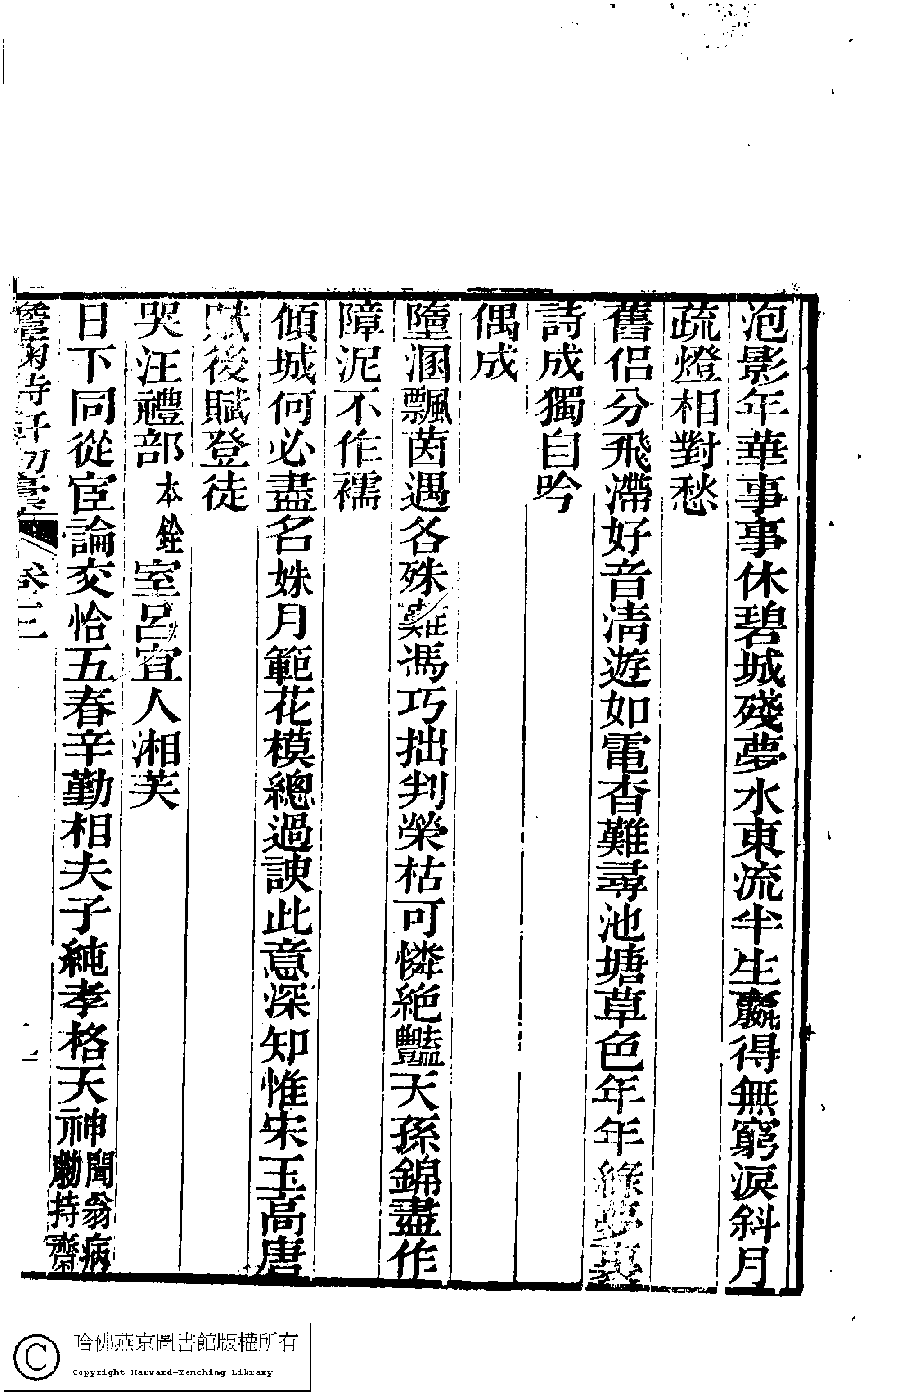 泡影年華事事休碧城殘夢水東流半生贏得無窮淚斜月
疏燈相對愁
舊侶分飛滯好音清遊如電杳難尋池塘草色年年綠夢裏
詩成獨自吟
偶成
墮溷飄茵遇各殊難馮巧拙判榮枯可憐絕豔天孫錦盡作
障泥不作襦
傾城何必盡名姝月範花模總過諛此意深知惟宋玉高唐
賦後賦登徒
哭汪禮部本銓室呂宜人湘芙
日下同從宦論交恰五春辛勤相夫子純孝格天神聞翁病
示勸持齋
詩奸初
卷三
哈佛燕京圖書館版權所有
Copyright Harvard-Yenching Library